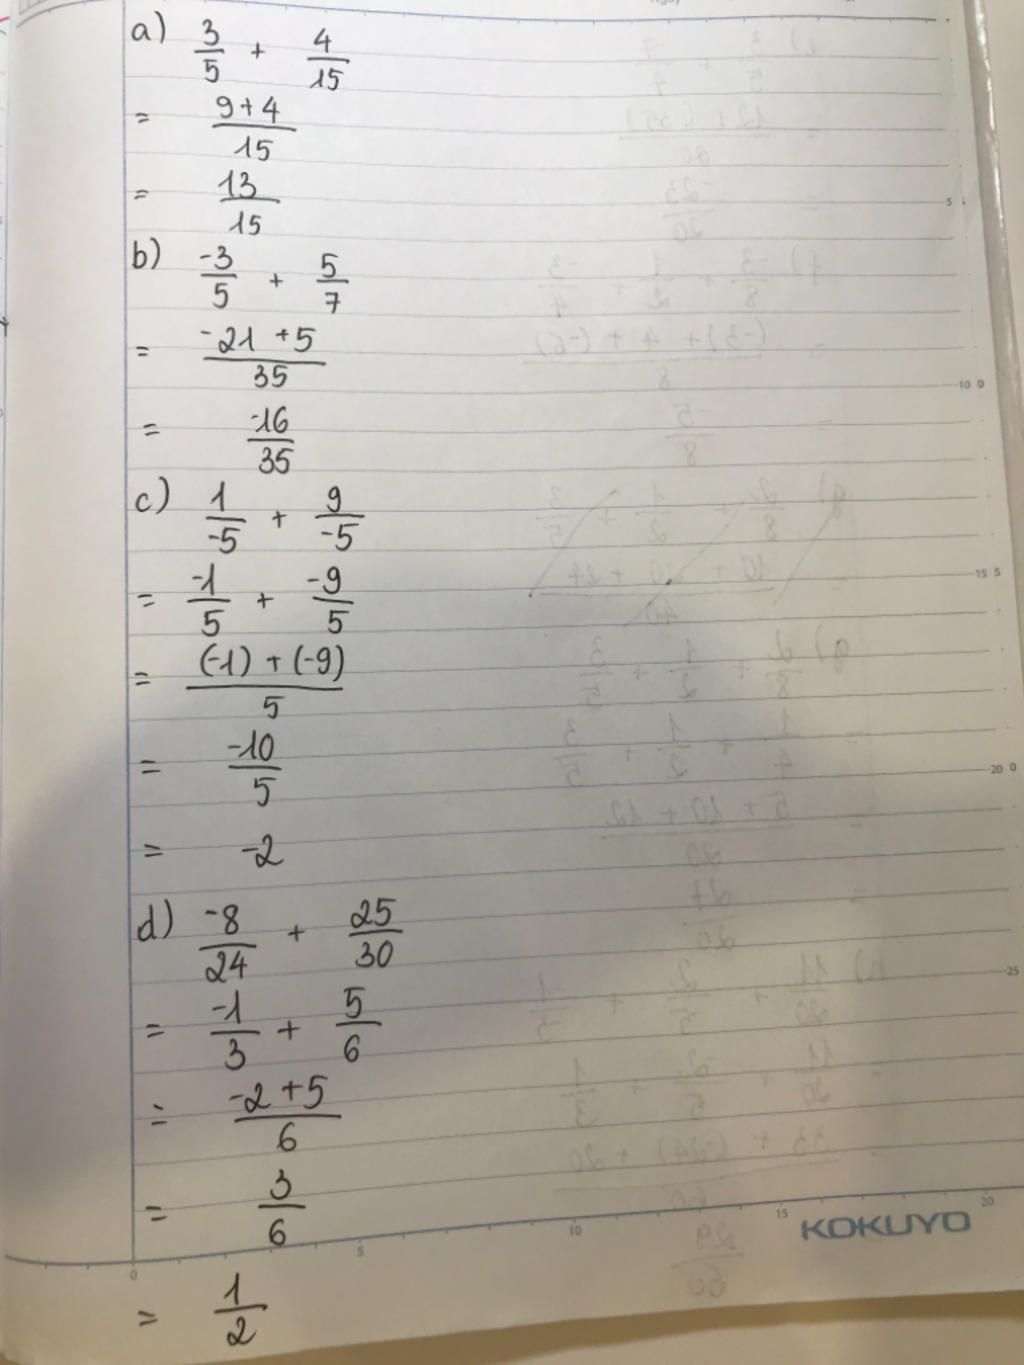 a) 3/5 + 4/15
= 9+4/15
= 13/15
b) -3/5 + 5/7
= -21 +5/35
= -16/35
c) 1/-5 + 9/-5
= -1/5 + -9/5
= (-1) + (-9)/5
= -10/5
= -2
d) -8/24 + 25/30
= -1/3 + 5/6
= -2 +5/6
= 3/6
= 1/2
5
10 0
15 5
20 0
25
0 5 10 15 20
KOKUYO